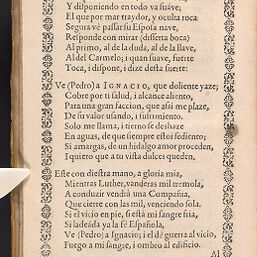 Y disponiendo en todo va suave;
El que por mar traydor, y oculta roca
Segura vè passar su Espola nave,
Responde con mirar (discreta boca)
Al primo, al de la duda, al de la llave,
Al del Carmelo; i quan suave, fuerte
Toca, i dispone, i dize desta suerte:
Ve (Pedro) a IGNACIO, que doliente yaze;
Cobre por tu salud, i alcance aliento,
Para una gran faccion, que assi me plaze,
De su valor usando, i sufrimiento.
Solo me llama, i tierno se deshaze
En aguas, de que siempre estos sediento;
Si amargas, de un hidalgo amor proceden,
I quiero que a tu vista dulces queden.
Este con diestra mano, a gloria mia,
Mientras Luther, vanderas mil tremola,
A conduzir vendrà una Compañia,
Que cierre con las mil, venciendo sola.
Si el vicio en pie, si està mi sangre fria,
Si ladeada ya la fè Española,
Ve (Pedro) a Ignacio; i el dè guerra al vicio,
Fuego a mi sangre, i ombro al edificio.
Al